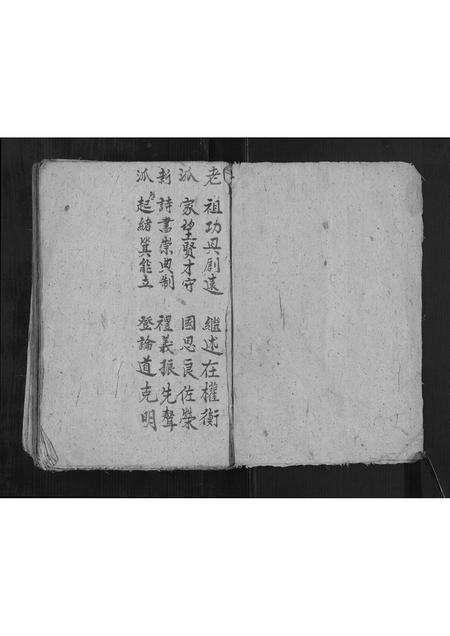 老 祖功與創遠 繼述在權衡
派 家望賢才守 國思良佐榮
新 詩書崇典制 禮義振先聲
派 起緒冀能立 登論道克明